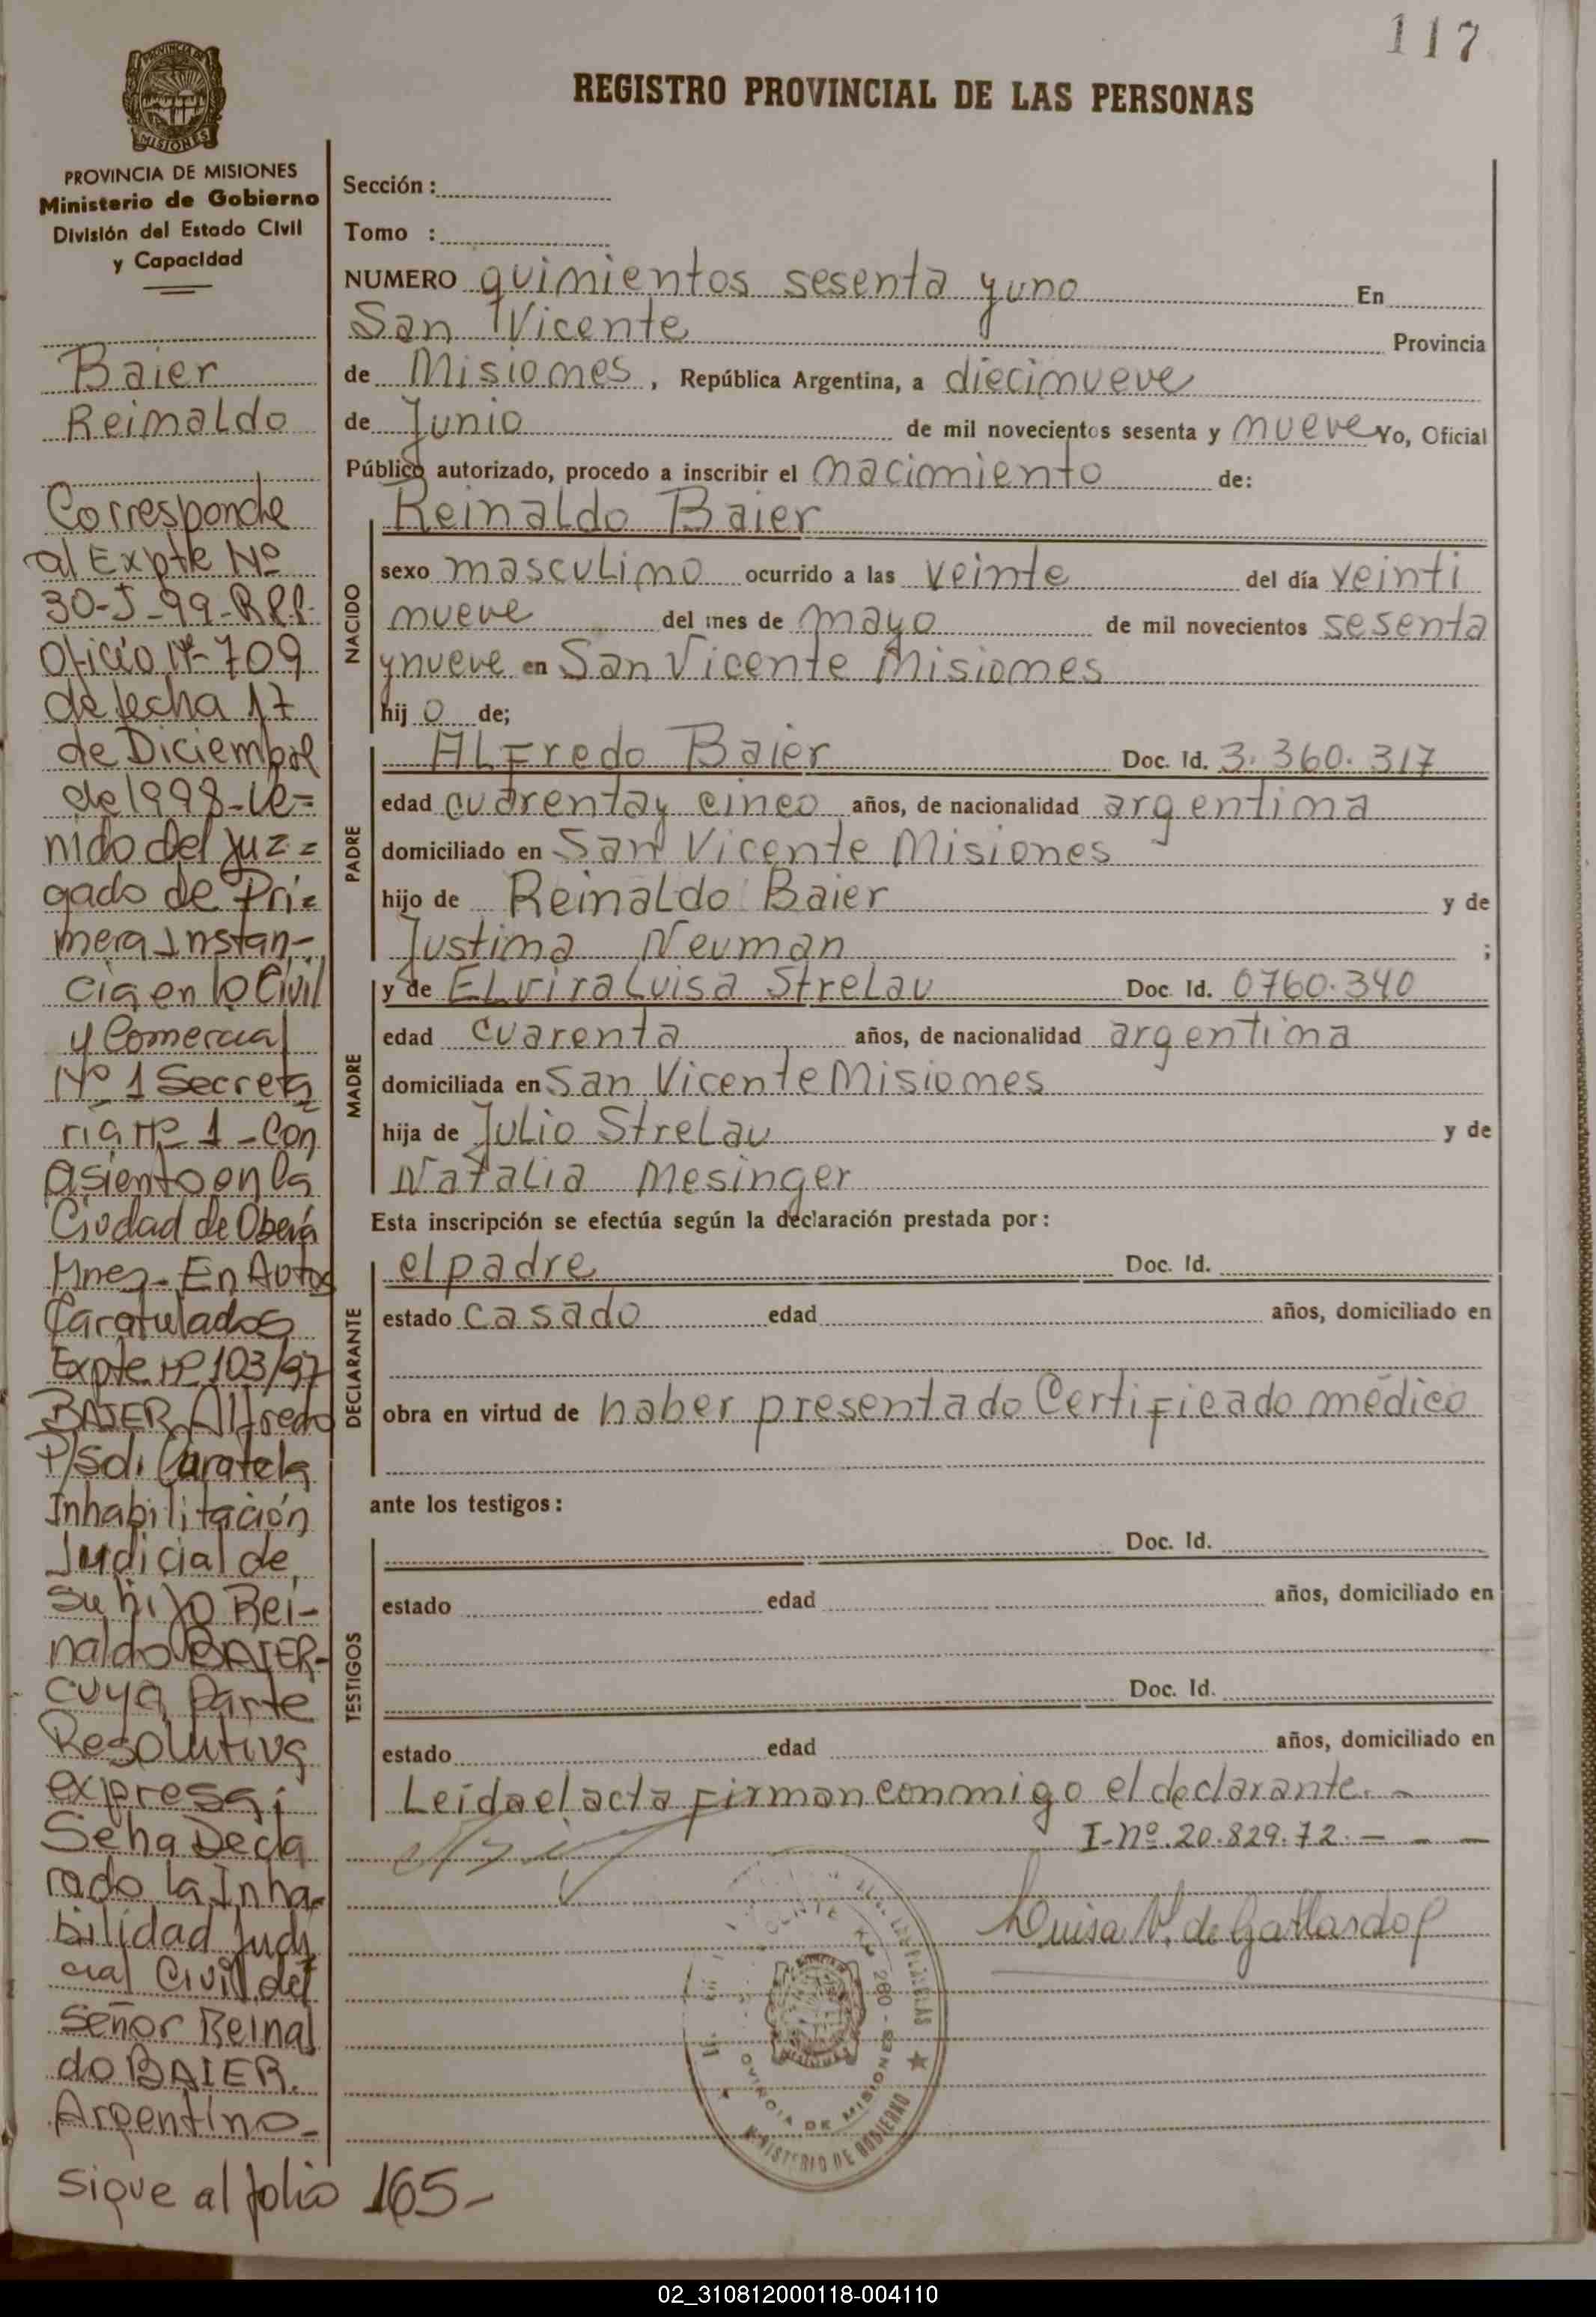 117
REGISTRO PROVINCIAL DE LAS PERSONAS
MISIONES
PROVINCIA DE MISIONES
Ministerio de Gobierno
División del Estado Civil
y Capacidad
Baier
Reinaldo
Corresponde
al Expte Nº
30-J-99-R.P.P.
Oficio Nº 709
de fecha 17
de Diciembre
de 1998-Ve=
nido del Juz=
gado de Pri=
mera Instan-
cia en lo Civil
y Comercial
Nº 1 Secreta
ria Nº 1 - Con
asiento en la
Ciudad de Oberá
Mnes. En Autos
Caratulados
Expte Nº 103/97
BAIER Alfredo
P/Sol. Curatela
Inhabilitación
Judicial de
su hijo Rei-
naldo BAIER-
cuya Parte
Resolutiva
expresa;
Se ha Decla
rado la Inha-
bilidad Judi
cial Civil del
Señor Reinal
do BAIER.
Argentino-
sigue al folio 165-
Sección :
Tomo :
NUMERO quinientos sesenta y uno En
San Vicente Provincia
de Misiones, República Argentina, a diecinueve
de Junio de mil novecientos sesenta y nueve Yo, Oficial
Público autorizado, procedo a inscribir el nacimiento de:
NACIDO
Reinaldo Baier
sexo masculino ocurrido a las veinte del día veinti
nueve del mes de mayo de mil novecientos sesenta
y nueve en San Vicente Misiones
hijo de;
PADRE
ALFredo Baier Doc. Id. 3.360.317
edad cuarenta y cinco años, de nacionalidad argentina
domiciliado en San Vicente Misiones
hijo de Reinaldo Baier y de
Justina Neuman ;
MADRE
y de Elvira Luisa Strelau Doc. Id. 0760.340
edad cuarenta años, de nacionalidad argentina
domiciliada en San Vicente Misiones
hija de Julio Strelau y de
Natalia Mesinger
Esta inscripción se efectúa según la declaración prestada por:
DECLARANTE
el padre Doc. Id.
estado casado edad años, domiciliado en
obra en virtud de haber presentado Certificado médico
ante los testigos:
TESTIGOS
Doc. Id.
estado edad años, domiciliado en
Doc. Id.
estado edad años, domiciliado en
Leída el acta firman conmigo el declarante. -
I-nº.20.829.72. - - -
Luisa V. de Gallardo
MINISTERIO DE GOBIERNO
DE MISIONES
02_310812000118-004110